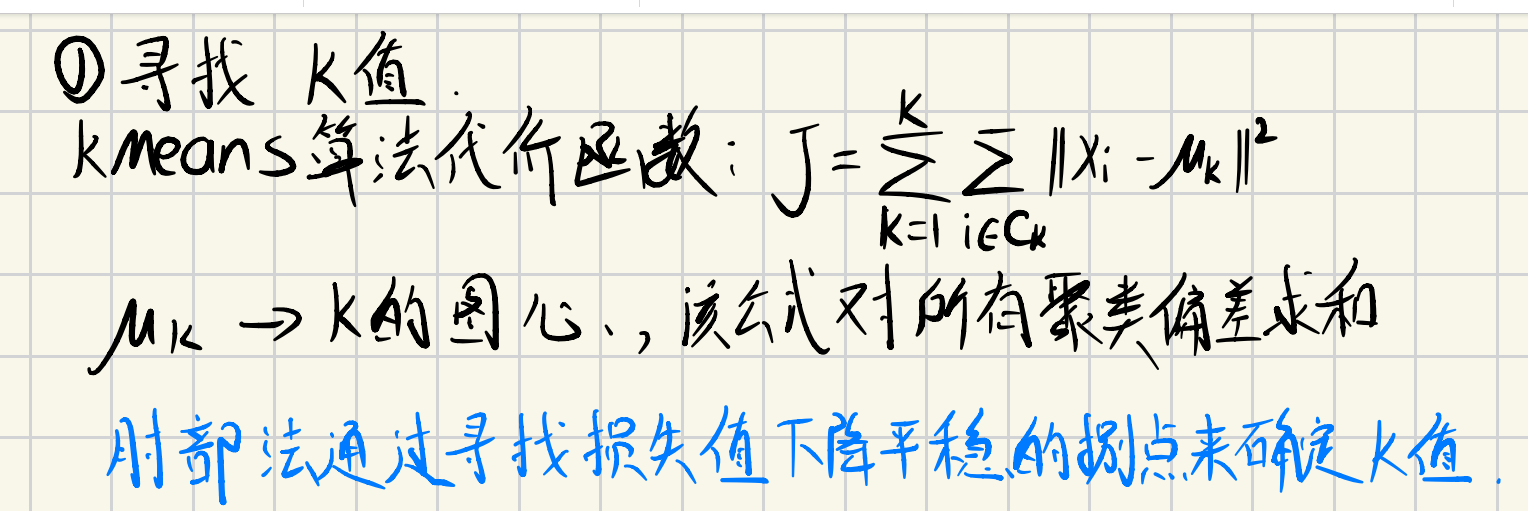 ① 寻找 K值.
kmeans算法代价函数: J = \sum_{k=1}^{K} \sum_{i∈C_k} ||x_i - μ_k||^2
μ_k → K的圆心, 该公式对所有聚类偏差求和
肘部法通过寻找损失值下降平稳的拐点来确定K值.